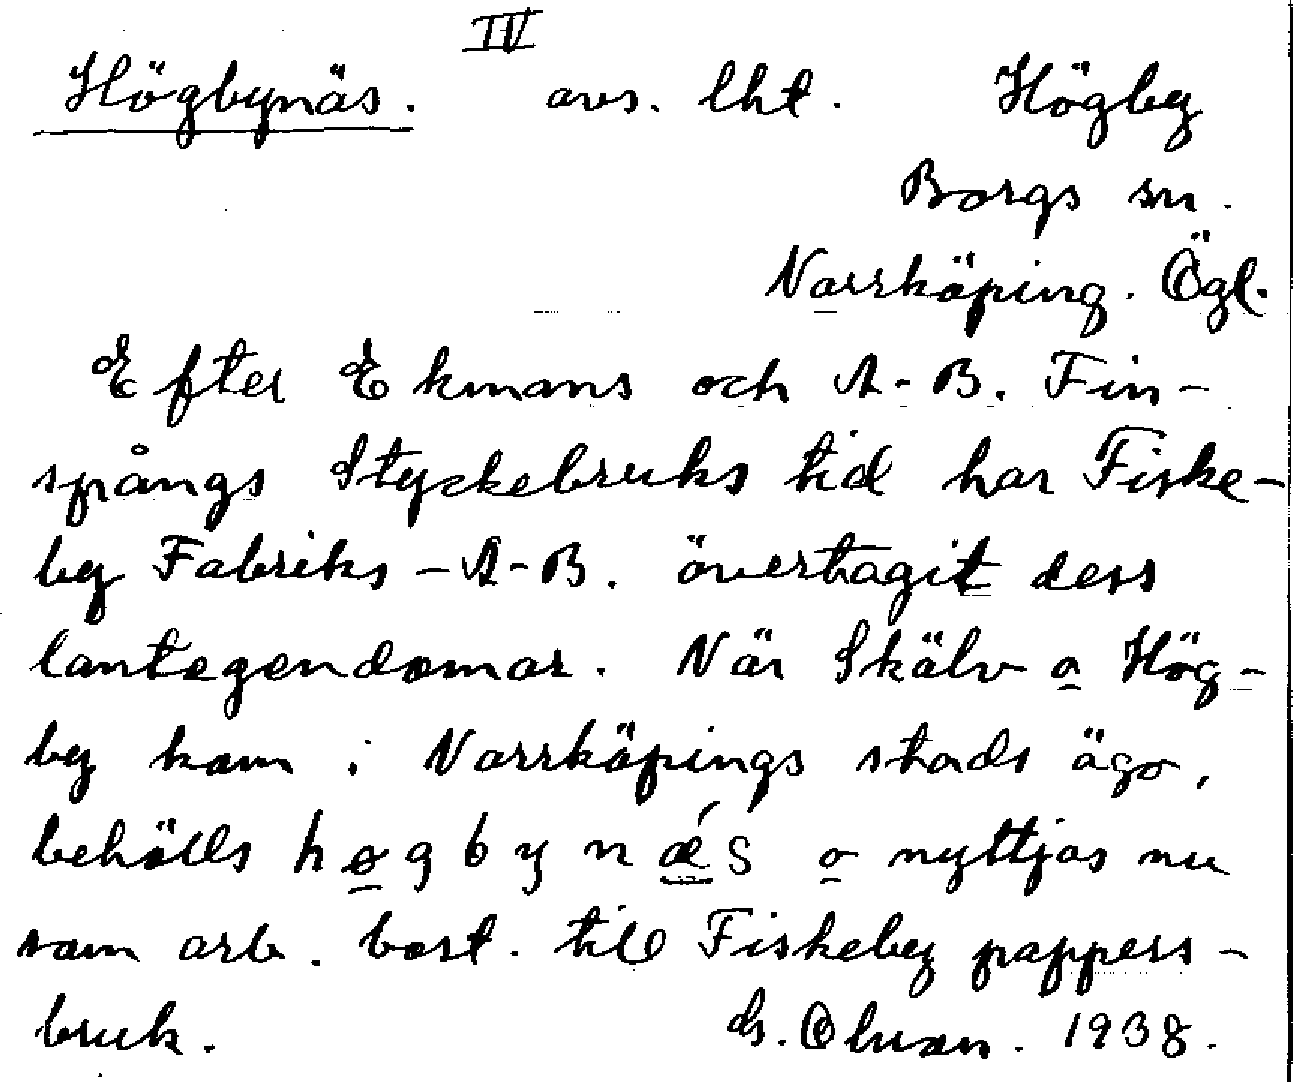 IV
Högbynäs. avs. lht. Högby
Borgs sn.
Norrköping. Ögl.
Efter Ekmans och A.-B. Fin-
spångs Styckebruks tid har Fiske-
by Fabriks-A-B. övertagit dess
lantegendomar. När Skälv o Hög-
by kom i Norrköpings stads ägo,
behölls høgbynǽs o nyttjas nu
som arb. bost. till Fiskeby pappers-
bruk. G. Olsson. 1938.